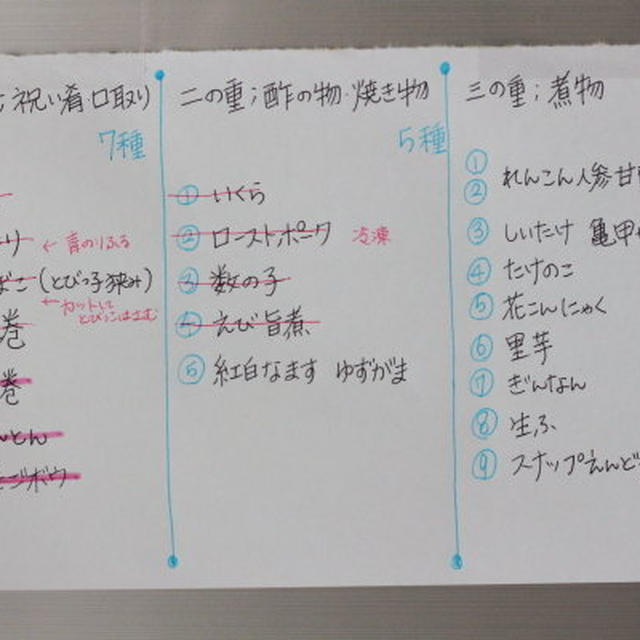 祝い肴・口取り
7種
り ← 青のりふる
ばこ(とびっ子狭み)
← カットして
とびっこはさむ
巻
巻
んとん
ゴボウ
二の重;酢の物・焼き物
5種
① いくら
② ローストポーク 冷凍
③ 数の子
④ えび旨煮
⑤ 紅白なます ゆずがま
三の重;煮物
①
② れんこん人参甘
③ しいたけ 亀甲
④ たけのこ
⑤ 花こんにゃく
⑥ 里芋
⑦ ぎんなん
⑧ 生ふ
⑨ スナップえんど